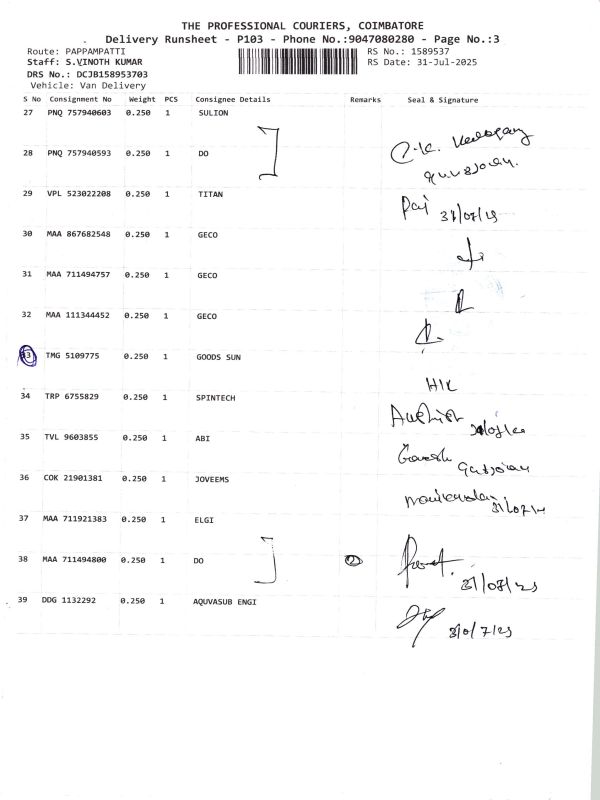 THE PROFESSIONAL COURIERS, COIMBATORE
Delivery Runsheet - P103 - Phone No.:9047080280 - Page No.:3
Route: PAPPAMPATTI RS No.: 1589537
Staff: S.VINOTH KUMAR RS Date: 31-Jul-2025
DRS No.: DCJB158953703
Vehicle: Van Delivery
S No Consignment No Weight PCS Consignee Details Remarks Seal & Signature
27 PNQ 757940603 0.250 1 SULION
28 PNQ 757940593 0.250 1 DO
29 VPL 523022208 0.250 1 TITAN
31/07/25
30 MAA 867682548 0.250 1 GECO
31 MAA 711494757 0.250 1 GECO
32 MAA 111344452 0.250 1 GECO
33 TMG 5109775 0.250 1 GOODS SUN
34 TRP 6755829 0.250 1 SPINTECH
35 TVL 9603855 0.250 1 ABI
36 COK 21901381 0.250 1 JOVEEMS
37 MAA 711921383 0.250 1 ELGI
38 MAA 711494800 0.250 1 DO 2
31/07/25
39 DDG 1132292 0.250 1 AQUVASUB ENGI